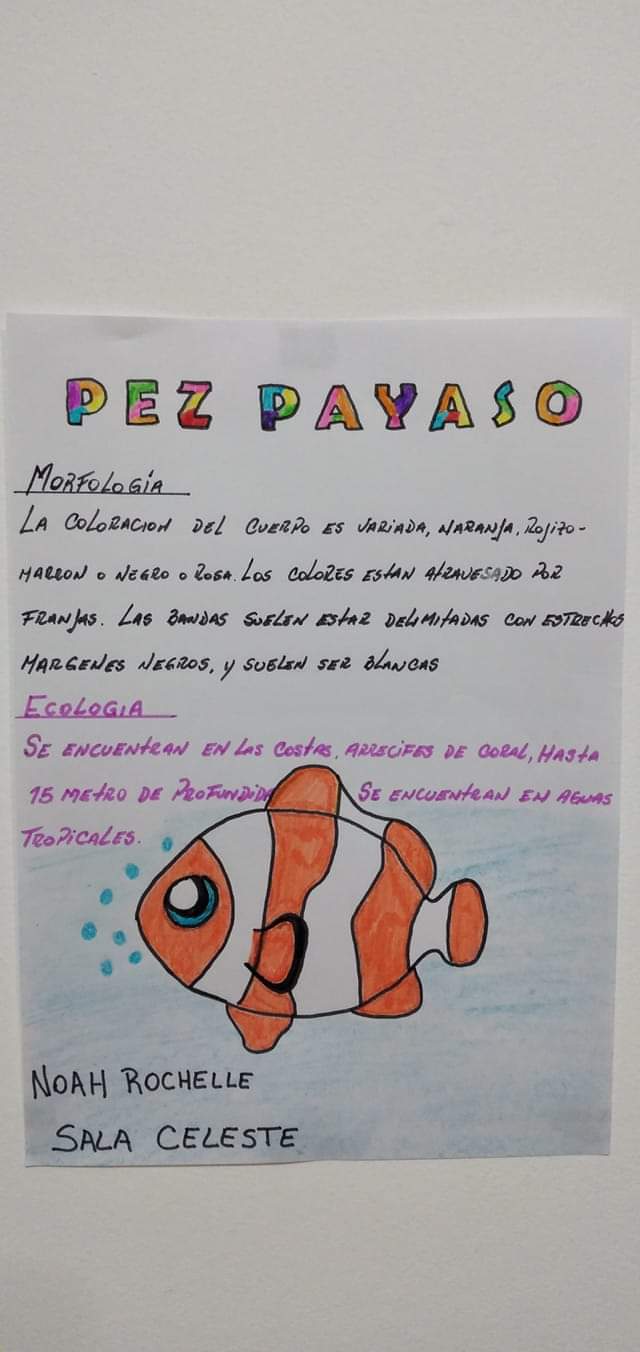 PEZ PAYASO
MORFOLOGÍA
LA COLORACION DEL CUERPO ES VARIADA, NARANJA, ROJIZO-
MARRON O NEGRO O ROSA. LOS COLORES ESTAN ATRAVESADO POR
FRANJAS. LAS BANDAS SUELEN ESTAR DELIMITADAS CON ESTRECHOS
MARGENES NEGROS, Y SUELEN SER BLANCAS
ECOLOGIA
SE ENCUENTRAN EN LAS COSTAS, ARRECIFES DE CORAL, HASTA
15 METRO DE PROFUNDIDA SE ENCUENTRAN EN AGUAS
TROPICALES.
NOAH ROCHELLE
SALA CELESTE